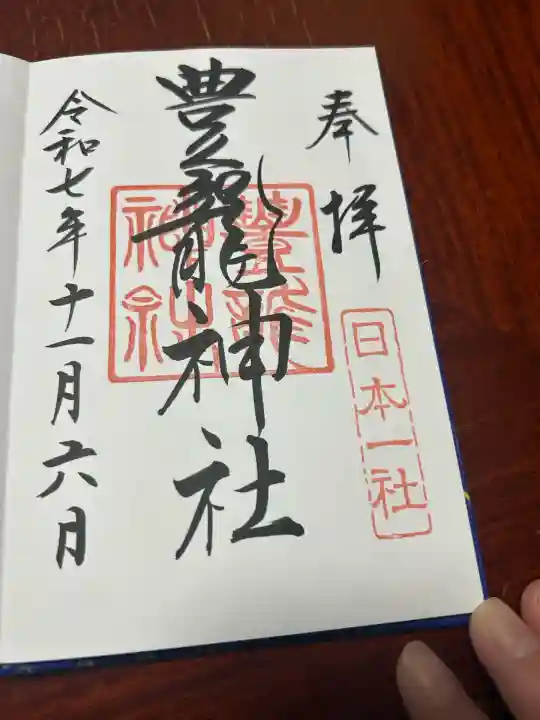 奉拝
日本一社
豊龍神社
豊龍
神社
令和七年十一月六日